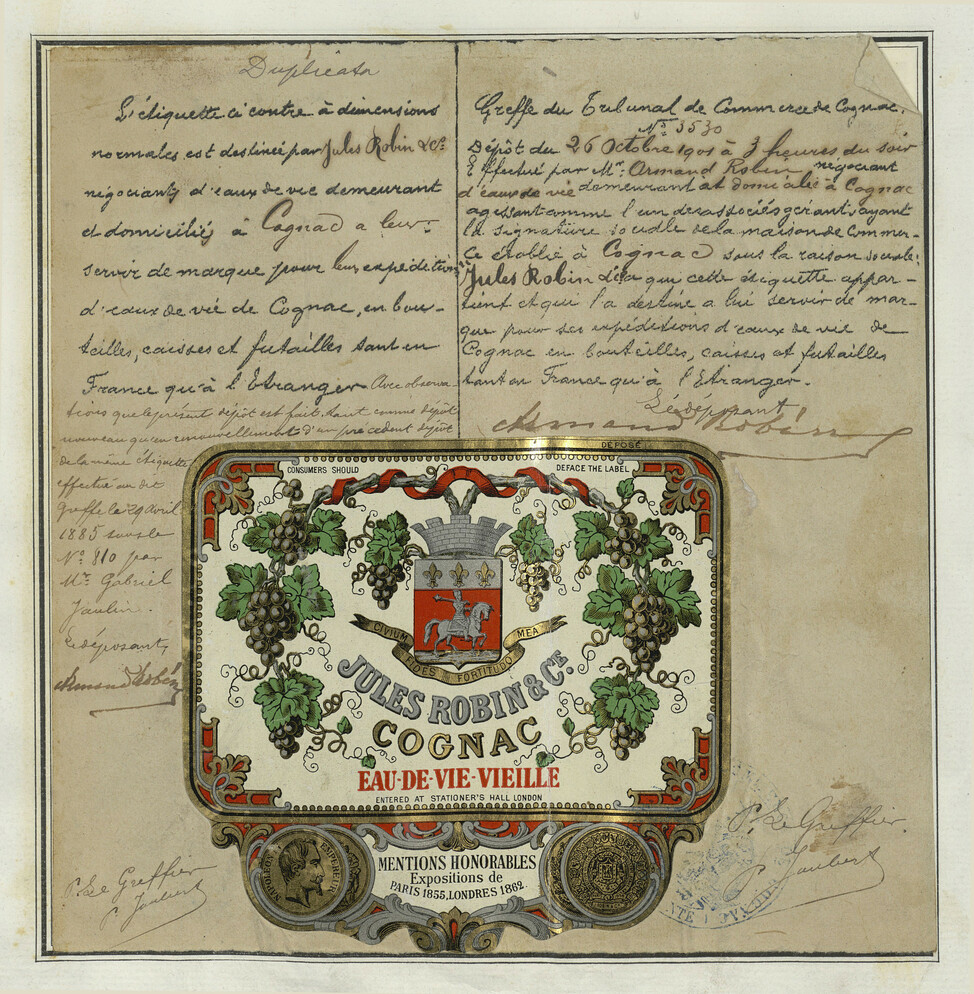 Duplicata
L'étiquette ci contre à dimensions
normales est destinée par Jules Robin & Cie
négociants d'eaux de vie demeurant
et domiciliés à Cognac a leur
servir de marque pour leurs expéditions
d'eaux de vie de Cognac, en bou-
teilles, caisses et futailles tant en
France qu'à l'Etranger Avec observa
tions que le présent dépôt est fait tant comme dépôt
nouveau qu'en renouvellement d'un précédent dépôt
de la même étiquette
effectué au dit
greffe le 29 Avril
1885 sous le
No 810 par
Mr Gabriel
Jaulin.
Le déposant,
Armand Robin
Greffe du Tribunal de Commerce de Cognac.
No 3530
Dépôt du 26 Octobre 1901 à 3 heures du soir
Effectué par Mr Armand Robin négociant
d'eaux de vie demeurant et domicilié à Cognac
agissant comme l'un des associés gérants ayant
la signature sociale de la maison de Commer-
ce établie à Cognac sous la raison sociale:
Jules Robin & Cie à qui cette étiquette appar-
tient et qui l'a destine a lui servir de mar-
que pour ses expéditions d'eaux de vie de
Cognac en bouteilles, caisses et futailles
tant en France qu'à l'Etranger.
Le déposant
Armand Robin
DÉPOSÉ
CONSUMERS SHOULD DEFACE THE LABEL
CIVIUM MEA
FIDES FORTITUDO
JULES ROBIN & CIE
COGNAC
EAU-DE-VIE-VIEILLE
ENTERED AT STATIONER'S HALL LONDON
NAPOLEON EMPEREUR
MENTIONS HONORABLES
Expositions de
PARIS 1855, LONDRES 1862
P. Le Greffier
P. Joubert
P. Le Greffier.
P. Joubert